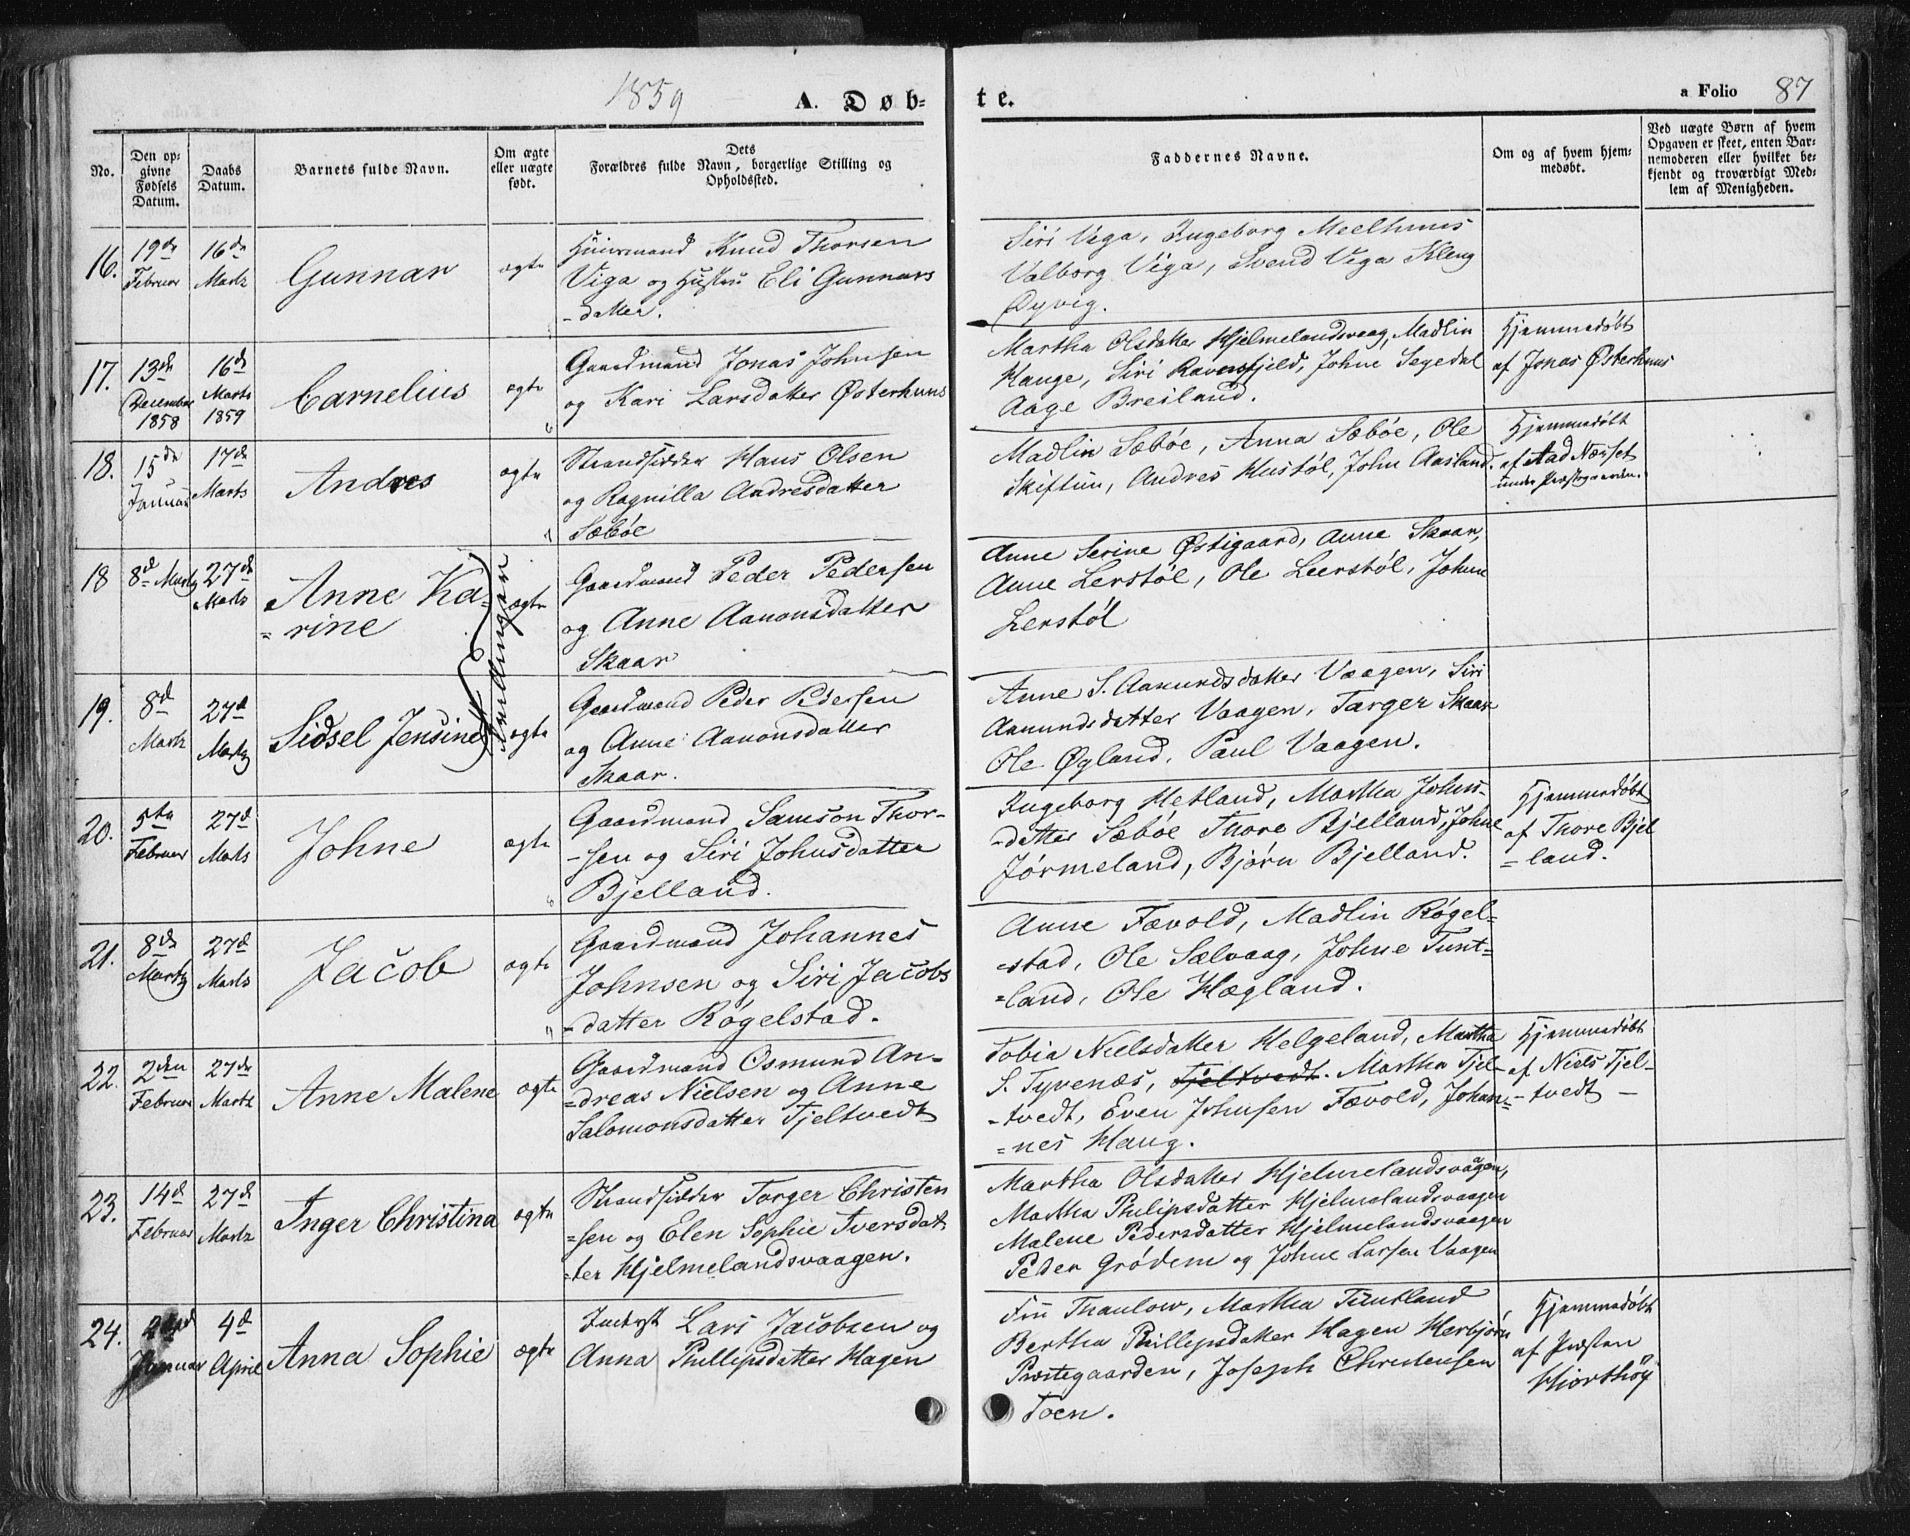 1859 A. Døb- te. a Folio 87
No.
Den op-
givne
Fødsels
Datum.
Daabs
Datum.
Barnets fulde Navn.
Om ægte
eller uægte
født.
Dets
Forældres fulde Navn, borgerlige Stilling og
Opholdssted.
Faddernes Navne.
Om og af hvem hjem-
medøbt.
Ved uægte Børn af hvem
Opgaven er skeet, enten Bar-
nemoderen eller hvilket be-
kjendt og troværdigt Med-
lem af Menigheden.
16.
19de
Februar
16de
Marts
Gunnar
ægte
Huusmand Knud Thorsen
Viga og Hustru Eli Gunnars
-datter.
Siri Vega, Ingeborg Meelhuus
Valborg Viga, Svend Vega Kleng
Øyvig.
17.
13de
December
1858
16de
Marts
1859
Carnelius
ægte
Gaardmand Jonas Johnsen
og Kari Larsdatter Østerhuus
Martha Olsdatter Hjelmelandsvaag, Madlin
Hauge, Siri Ravensfjeld, Johne Segedal
Aage Breiland.
Hjemmedøbt
af Jonas Østerhuus
18.
15de
Januar
17de
Marts
Andres
ægte
Strandsidder Hans Olsen
og Ragnilla Andresdatter
Sæbøe
Madlin Sæbøe, Anna Sæbøe, Ole
Skiftun, Andres Hustøl, John Aasland.
Hjemmedøbt
af Aad Næset
under Præstegaarden.
18
8d Marts
27de
Marts
Anne Ka-
=rine
Tvillinger
ægte
Gaardmand Peder Pedersen
og Anne Aanonsdatter
Skaar
Anne Serine Østigaard, Anne Skaar,
Anne Lerstøl, Ole Leerstøl, Johne
Lerstøl
19.
8d
Marts
27d
Marts
Sidsel Jensine
ægte
Gaardmand Peder Pedersen
og Anne Aanonsdatter
Skaar.
Anne S. Aamundsdatter Vaagen, Siri
Aamundsdatter Vaagen, Targer Skaar
Ole Øgland, Paul Vaagen.
20.
5te
Februar
27d
Marts
Johne
ægte
Gaardmand Samson Thor-
-sen og Siri Johnsdatter
Bjelland.
Ingeborg Hetland, Martha Johns-
-datter Sæbøe Thore Bjelland, Johne
Jørmeland, Bjørn Bjelland.
Hjemmedøbt
af Thore Bjel
=land.
21.
8de
Marts
27d
Marts
Jacob
ægte
Gaardmand Johannes
Johnsen og Siri Jacobs
=datter Røgelstad.
Anne Fævold, Madlin Røgel=
-stad, Ole Sælvaag, Johne Tunt-
=land, Ole Hægland.
22.
2den
Februar
27de
Marts
Anne Malene
ægte
Gaardmand Osmund An-
=dreas Nielsen og Anne
Salomonsdatter Tjeltvedt
Tobia Nielsdatter Helgeland, Martha
S. Tyvenæs, Tjeltvedt. Martha Tjel-
-tvedt, Even Johnsen Fævold, Johan-
=nes Haug.
Hjemmedøbt
af Niels Tjel-
-tvedt -
23.
14d
Februar
27de
Marts
Inger Christina
ægte
Strandsidder Torger Christen
=sen og Elen Sophie Iversdat
=ter Hjelmelandsvaagen.
Martha Olsdatter Hjelmelandsvaagen,
Martha Philipsdatter Hjelmelandsvaagen
Malene Pedersdatter Hjelmelandsvaagen
Peder Grødem og Johne Larsen Vaagen
24.
Januar
4d
April
Anna Sophie
ægte
Inderst Lars Jacobsen og
Anna Phillipsdatter Hagen
Thaulow, Martha Tuntland
Bertha Phillipsdatter Hagen Herbjørn
Præstegaarden, Joseph Christensen
Toen.
Hjemmedøbt
af Præsten
Hiorthøy